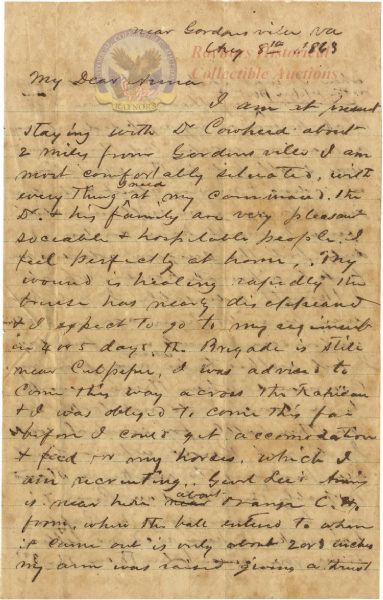 near Gordonsville Va
Aug 8th 1863
My Dear Anna
I am at present
staying with Dr Cowherd about
2 miles from Gordonsville I am
most comfortably situated, with
every thing I need at my command. The
Dr. & his family are very pleasant
sociable & hospitable people. I
feel perfectly at home, My
wound is healing rapidly the
bruise has nearly disappeared
& I expect to go to my regiment
in 4 or 5 days. The Brigade is still
near Culpeper, I was advised to
come this way across the Rapidan
& I was obliged to come this far
before I could get accomodation
& feed for my horses, which I
am recruiting. Genl Lee's Army
is near here near about Orange C.H.
from where the ball entered to where
it came out is only about 2 or 3 inches
my arm was raised giving a
Raynors' Historical
Collectible Auctions
RAYNORS'